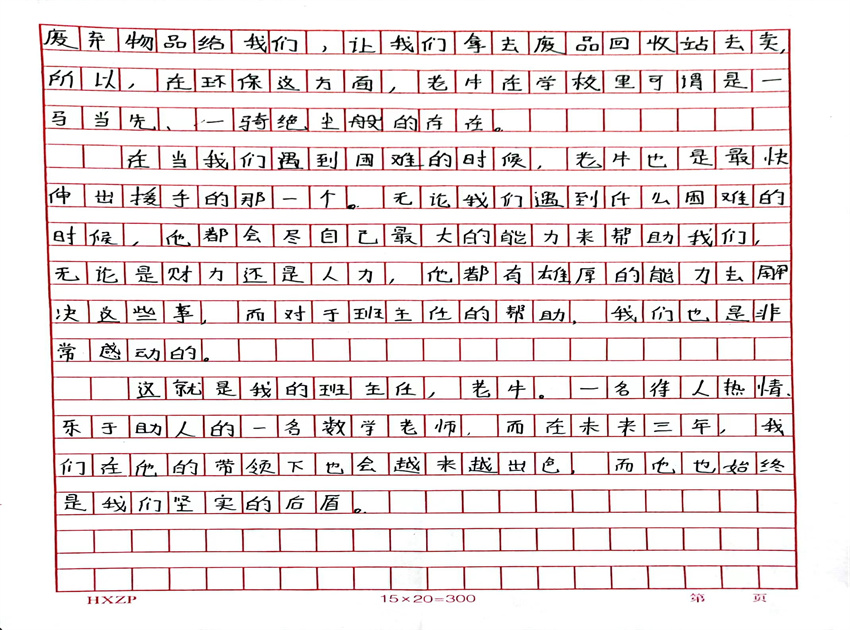 废弃物品给我们,让我们拿去废品回收站去卖,
所以,在环保这方面,老牛在学校里可谓是一
马当先、一骑绝尘般的存在。
在当我们遇到困难的时候,老牛也是最快
伸出援手的那一个。无论我们遇到什么困难的
时候,他都会尽自己最大的能力来帮助我们,
无论是财力还是人力,他都有雄厚的能力去解
决这些事,而对于班主任的帮助,我们也是非
常感动的。
这就是我的班主任,老牛。一名待人热情、
乐于助人的一名数学老师,而在未来三年,我
们在他的带领下也会越来越出色,而他也始终
是我们坚实的后盾。
HXZP 15×20=300 第 页